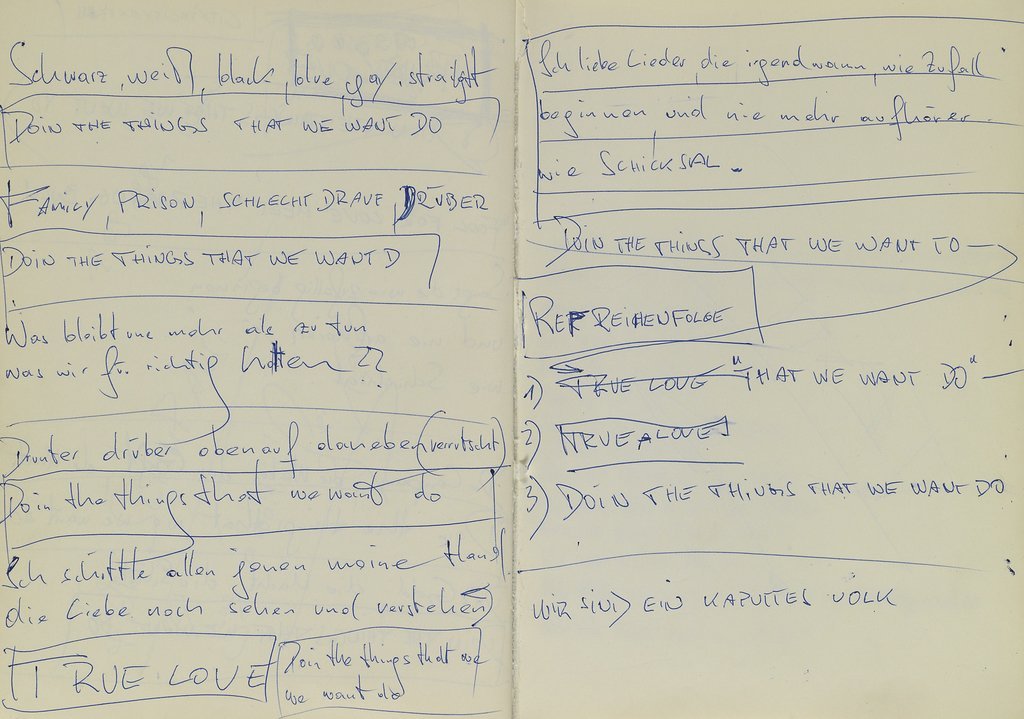 Schwarz, weiß, black, blue, gay, straight
DOIN THE THINGS THAT WE WANT DO
FAMILY, PRISON, SCHLECHT DRAUF, DRÜBER
DOIN THE THINGS THAT WE WANT D
Was bleibt uns mehr als zu tun
was wir für richtig halten ??
Drunter drüber obenauf daneben (verrutscht)
Doin the things that we want do
Ich schüttle allen jenen meine Hand
die Liebe noch sehen und verstehen
TRUE LOVE
Doin the things that we
we want do
Ich liebe Lieder, die irgendwann, wie Zufall
beginnen und nie mehr aufhören.
wie SCHICKSAL.
DOIN THE THINGS THAT WE WANT TO
REF REIHENFOLGE
1) TRUE LOVE "THAT WE WANT DO"
2) TRUE LOVE
3) DOIN THE THINGS THAT WE WANT DO
WIR SIND EIN KAPUTTES VOLK